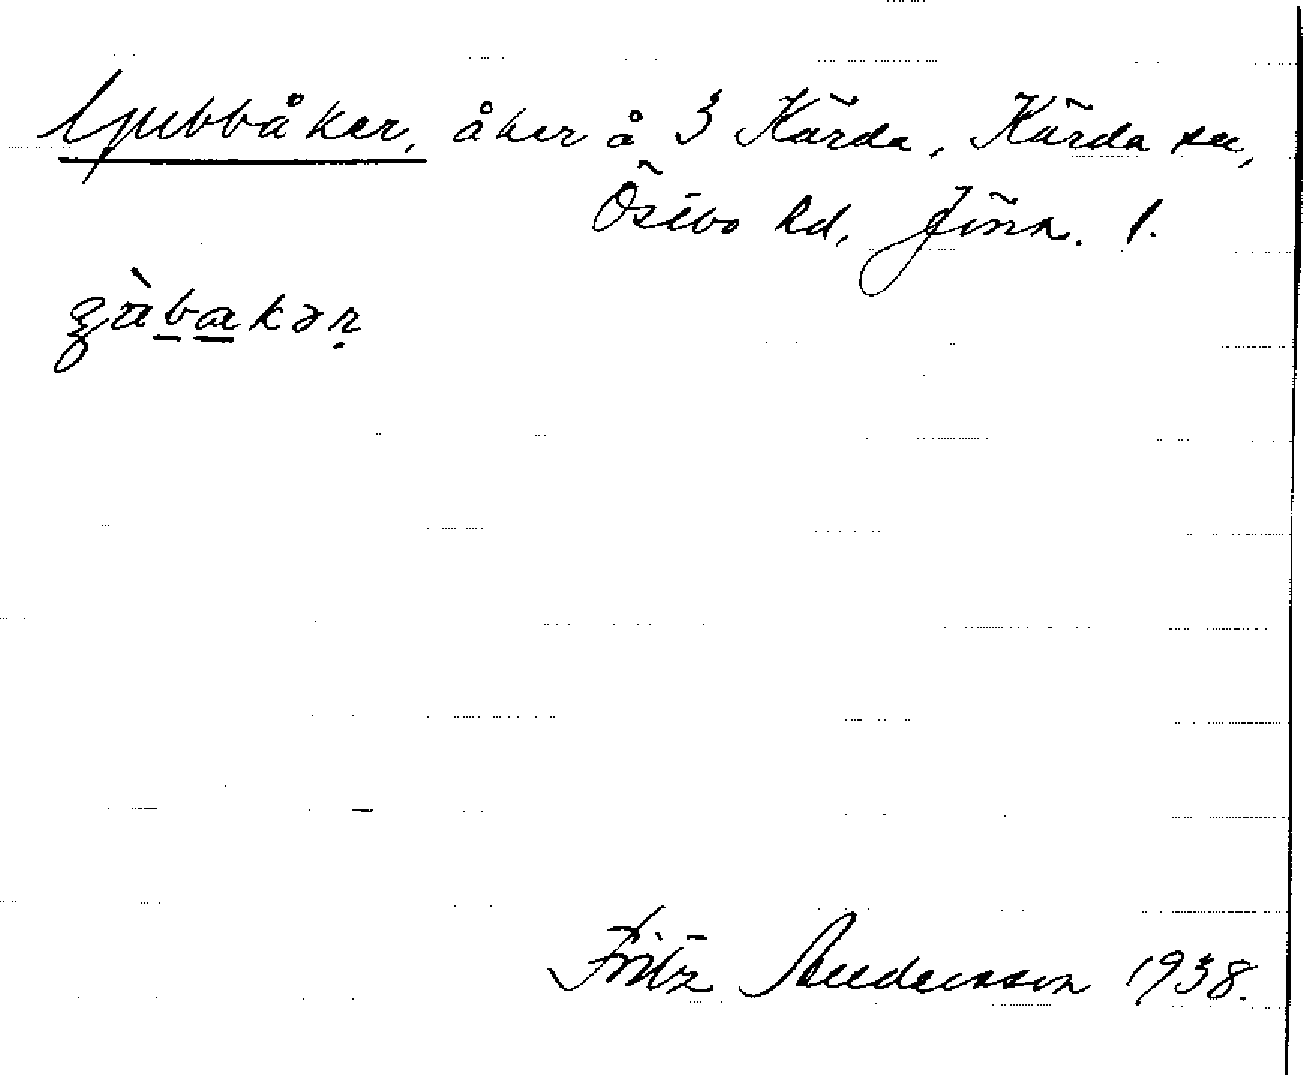 Gubbåker, åker å 3 Kärda, Kärda sn,
Östbo hd, Jönk. l.
Fritz Andersson 1938.